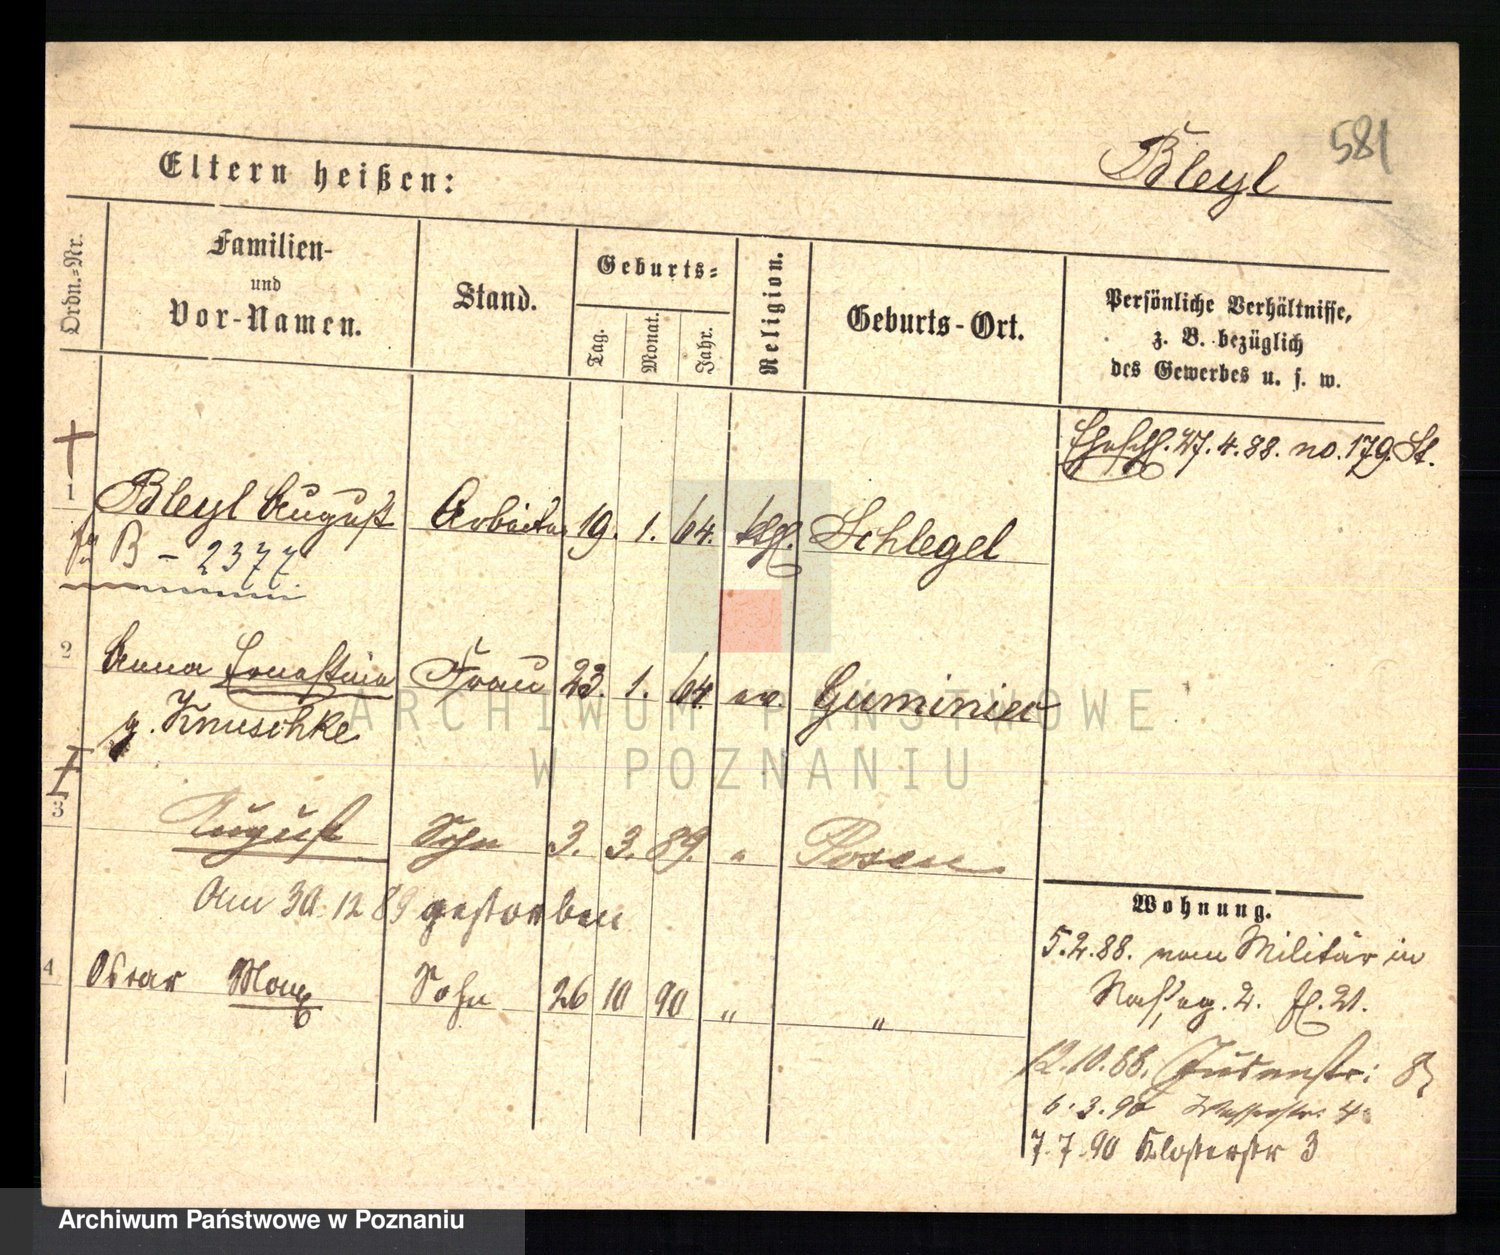 581
Eltern heißen: Bleyl
Ordn.-Nr.
Familien-
und
Vor-Namen.
Stand.
Geburts-
Tag.
Monat.
Jahr.
Religion.
Geburts-Ort.
Persönliche Verhältnisse,
z. B. bezüglich
des Gewerbes u. s. w.
Eheschl. 27.4.88. no. 179. St.
1 Bleyl August Arbeiter 19. 1. 64. kth. Schlegel
B - 2377
2 Anna Ernestine Frau 23. 1. 64. ev. Guminiec
g. Knuschke
3 August Sohn 3. 3. 89. " Posen
Am 30.12 89 gestorben
4 Oscar Max Sohn 26 10 90 " "
Wohnung.
5.2.88. vom Militär in
2. 21.
12.10.88. Judenstr: 8
6.3.90 Wasserstr: 4.
7.7.90 Klosterstr 3
ARCHIWUM PAŃSTWOWE
W POZNANIU
Archiwum Państwowe w Poznaniu